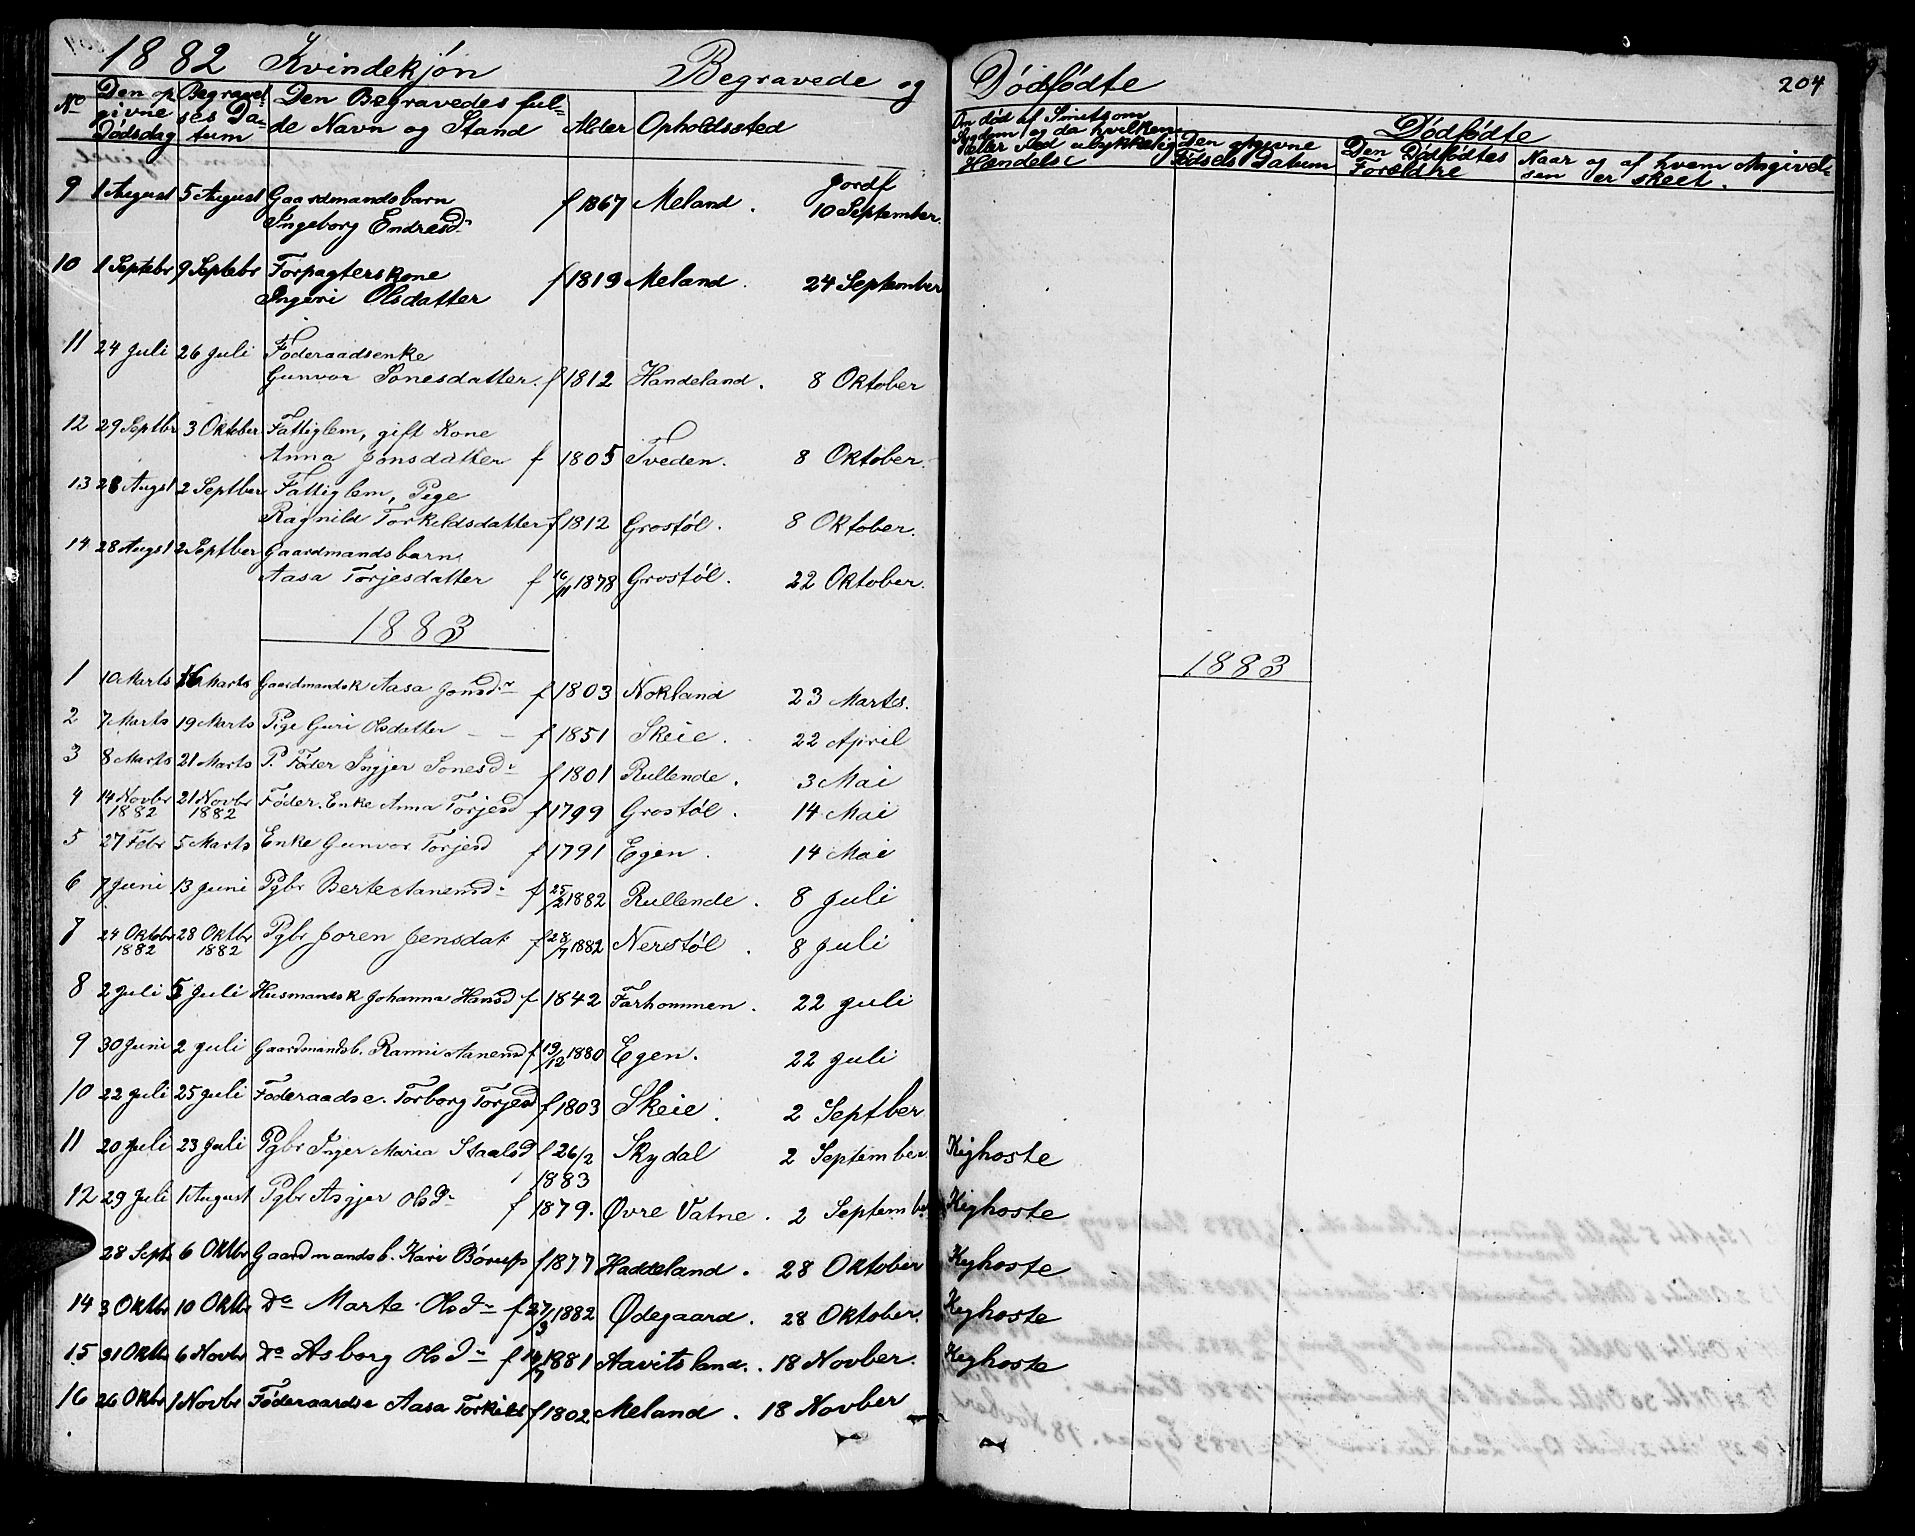 1882 Kvindekjøn Begravede og Dødfødte 204
No Den op givne Dødsdag Begravel ses Da- tum Den Begravedes ful- de Navn og Stand Alder Opholdssted
Om død af Smitsom Sygdom og da hvilken eller ved ulykkelig Hændelse Den opgivne Fødsels Datum Dødfødte Den Dødfødtes Forældre Naar og af hvem Angivel- sen er skeet.
Jordf
9 1 August 5 August Gaardmandsbarn
Ingeborg Endresd. f 1867 Meland. 10 September.
10 1 Septebr 9 Septebr Forpagterskone
Ingeri Olsdatter f 1819 Meland. 24 September
11 24 Juli 26 Juli Føderaadsenke
Gunvor Sonesdatter. f 1812 Handeland. 8 Oktober
12 29 Septbr 3 Oktober Fattiglem, gift Kone
Anna Jonsdatter f 1805 Tveden. 8 Oktober.
13 28 Augst 2 Septber Fattiglem, Pige
Ragnild Torkildsdatter f 1812 Grostøl. 8 Oktober.
14 28 Augst 2 Septber Gaardmandsbarn
Aasa Torjesdatter f 16/11 1878 Grostøl. 22 Oktober.
1883
1883
1 10 Marts 16 Marts Gaardmandsk Aasa Jonsd. f 1803 Nokland 23 Marts.
2 7 Marts 19 Marts Pige Guri Olsdatter - - f 1851 Skeie. 22 April
3 8 Marts 21 Marts P. Føder Ingjer Sonesd. f 1801 Rullende. 3 Mai
4 14 Novbr 21 Novbr Føder. Enke Anna Torjesd f 1799 Grostøl. 14 Mai
1882 1882
5 27 Febr 5 Marts Enke Gunvor Torjesd f 1791 Egen. 14 Mai
6 7 Juni 13 Juni Pgbr Berte Aanensd. f 25/2 1882 Rullende. 8 Juli
7 24 Oktbr 28 Oktbr Pgbr Joren Jensdat. f 28/7 1882 Nerstøl. 8 Juli
1882 1882
8 2 Juli 5 Juli Husmandsk Johanna Hansd f 1842 Farhommen. 22 Juli
9 30 Juni 2 Juli Gaardmandsb. Ranni Aanensd f 19/12 1880 Egen. 22 Juli
10 22 Juli 25 Juli Føderaadse. Torborg Torjesd f 1803 Skeie. 2 Septber
11 20 Juli 23 Juli Pgbr Inger Maria Staalsd f 26/2 Skydal 2 September Kighoste
1883
12 29 Juli 1 August Pgbr Asgjer Olsd. f 1879. Øvre Vatne. 2 September Kighoste
28 Sept. 6 Oktbr Gaardmandsb. Kari Børups f 1877 Haddeland. 28 Oktober Kighoste
14 3 Oktbr 10 Oktbr Do Marte Olsd. f 27/3 1882 Ødegaard. 28 Oktober. Kighoste
15 31 Oktbr 6 Novbr Do Asborg Olsd. f 14/7 1881 Aavitsland. 18 Novber. Kighoste
16 26 Oktbr 1 Novbr Føderaardse Aasa Torkilds f 1802 Meland. 18 Novber